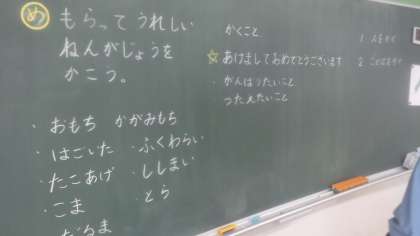 め もらってうれしい
ねんがじょうを
かこう。
・おもち かがみもち
・はごいた ・ふくわらい
・たこあげ ・ししまい
・こま ・とら
だるま
かくこと
☆あけましておめでとうございます
・がんばりたいこと
つたえたいこと
1.
2.